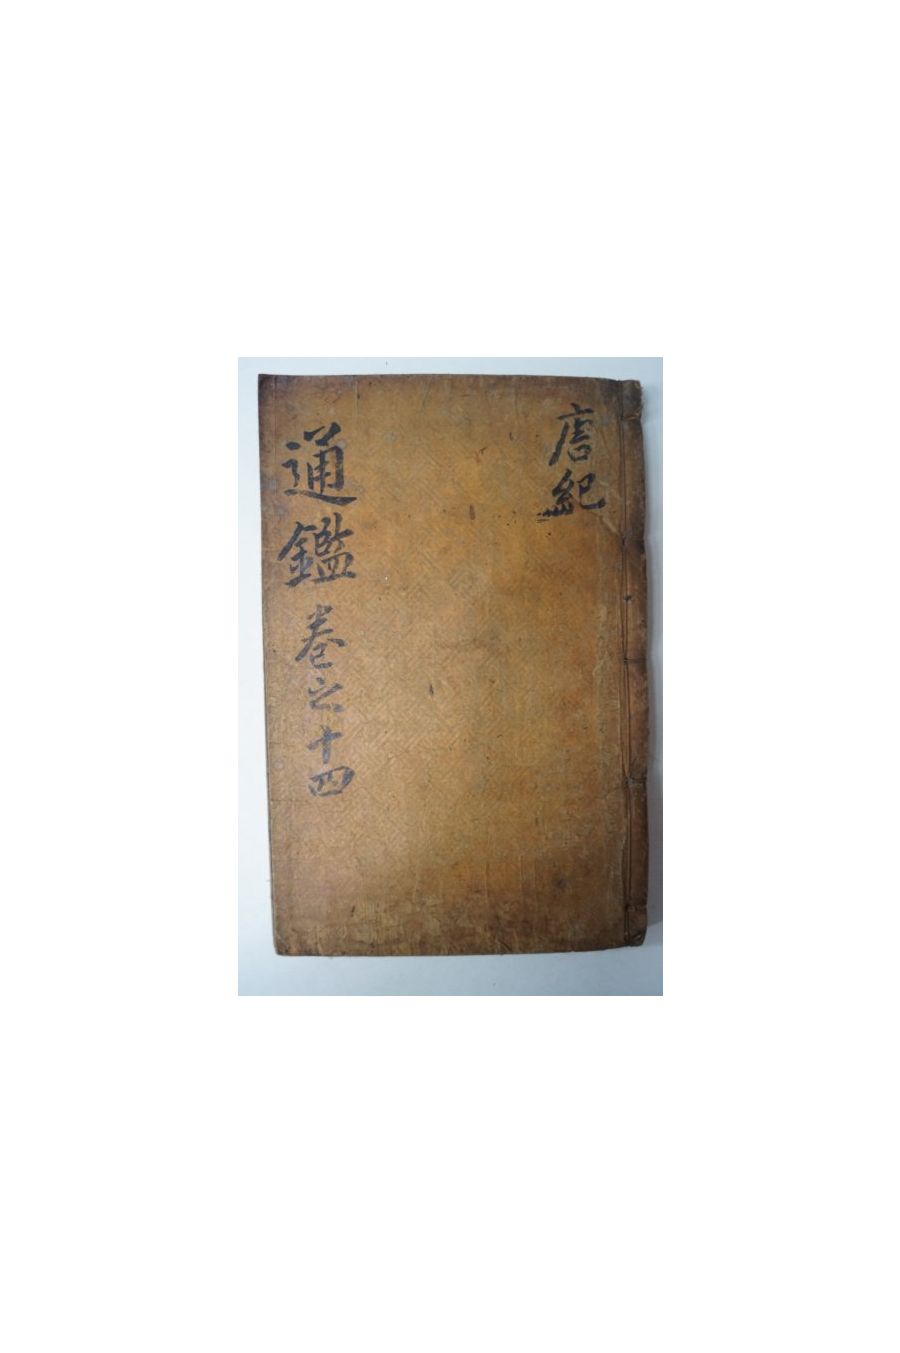 唐紀
通鑑 卷之十四